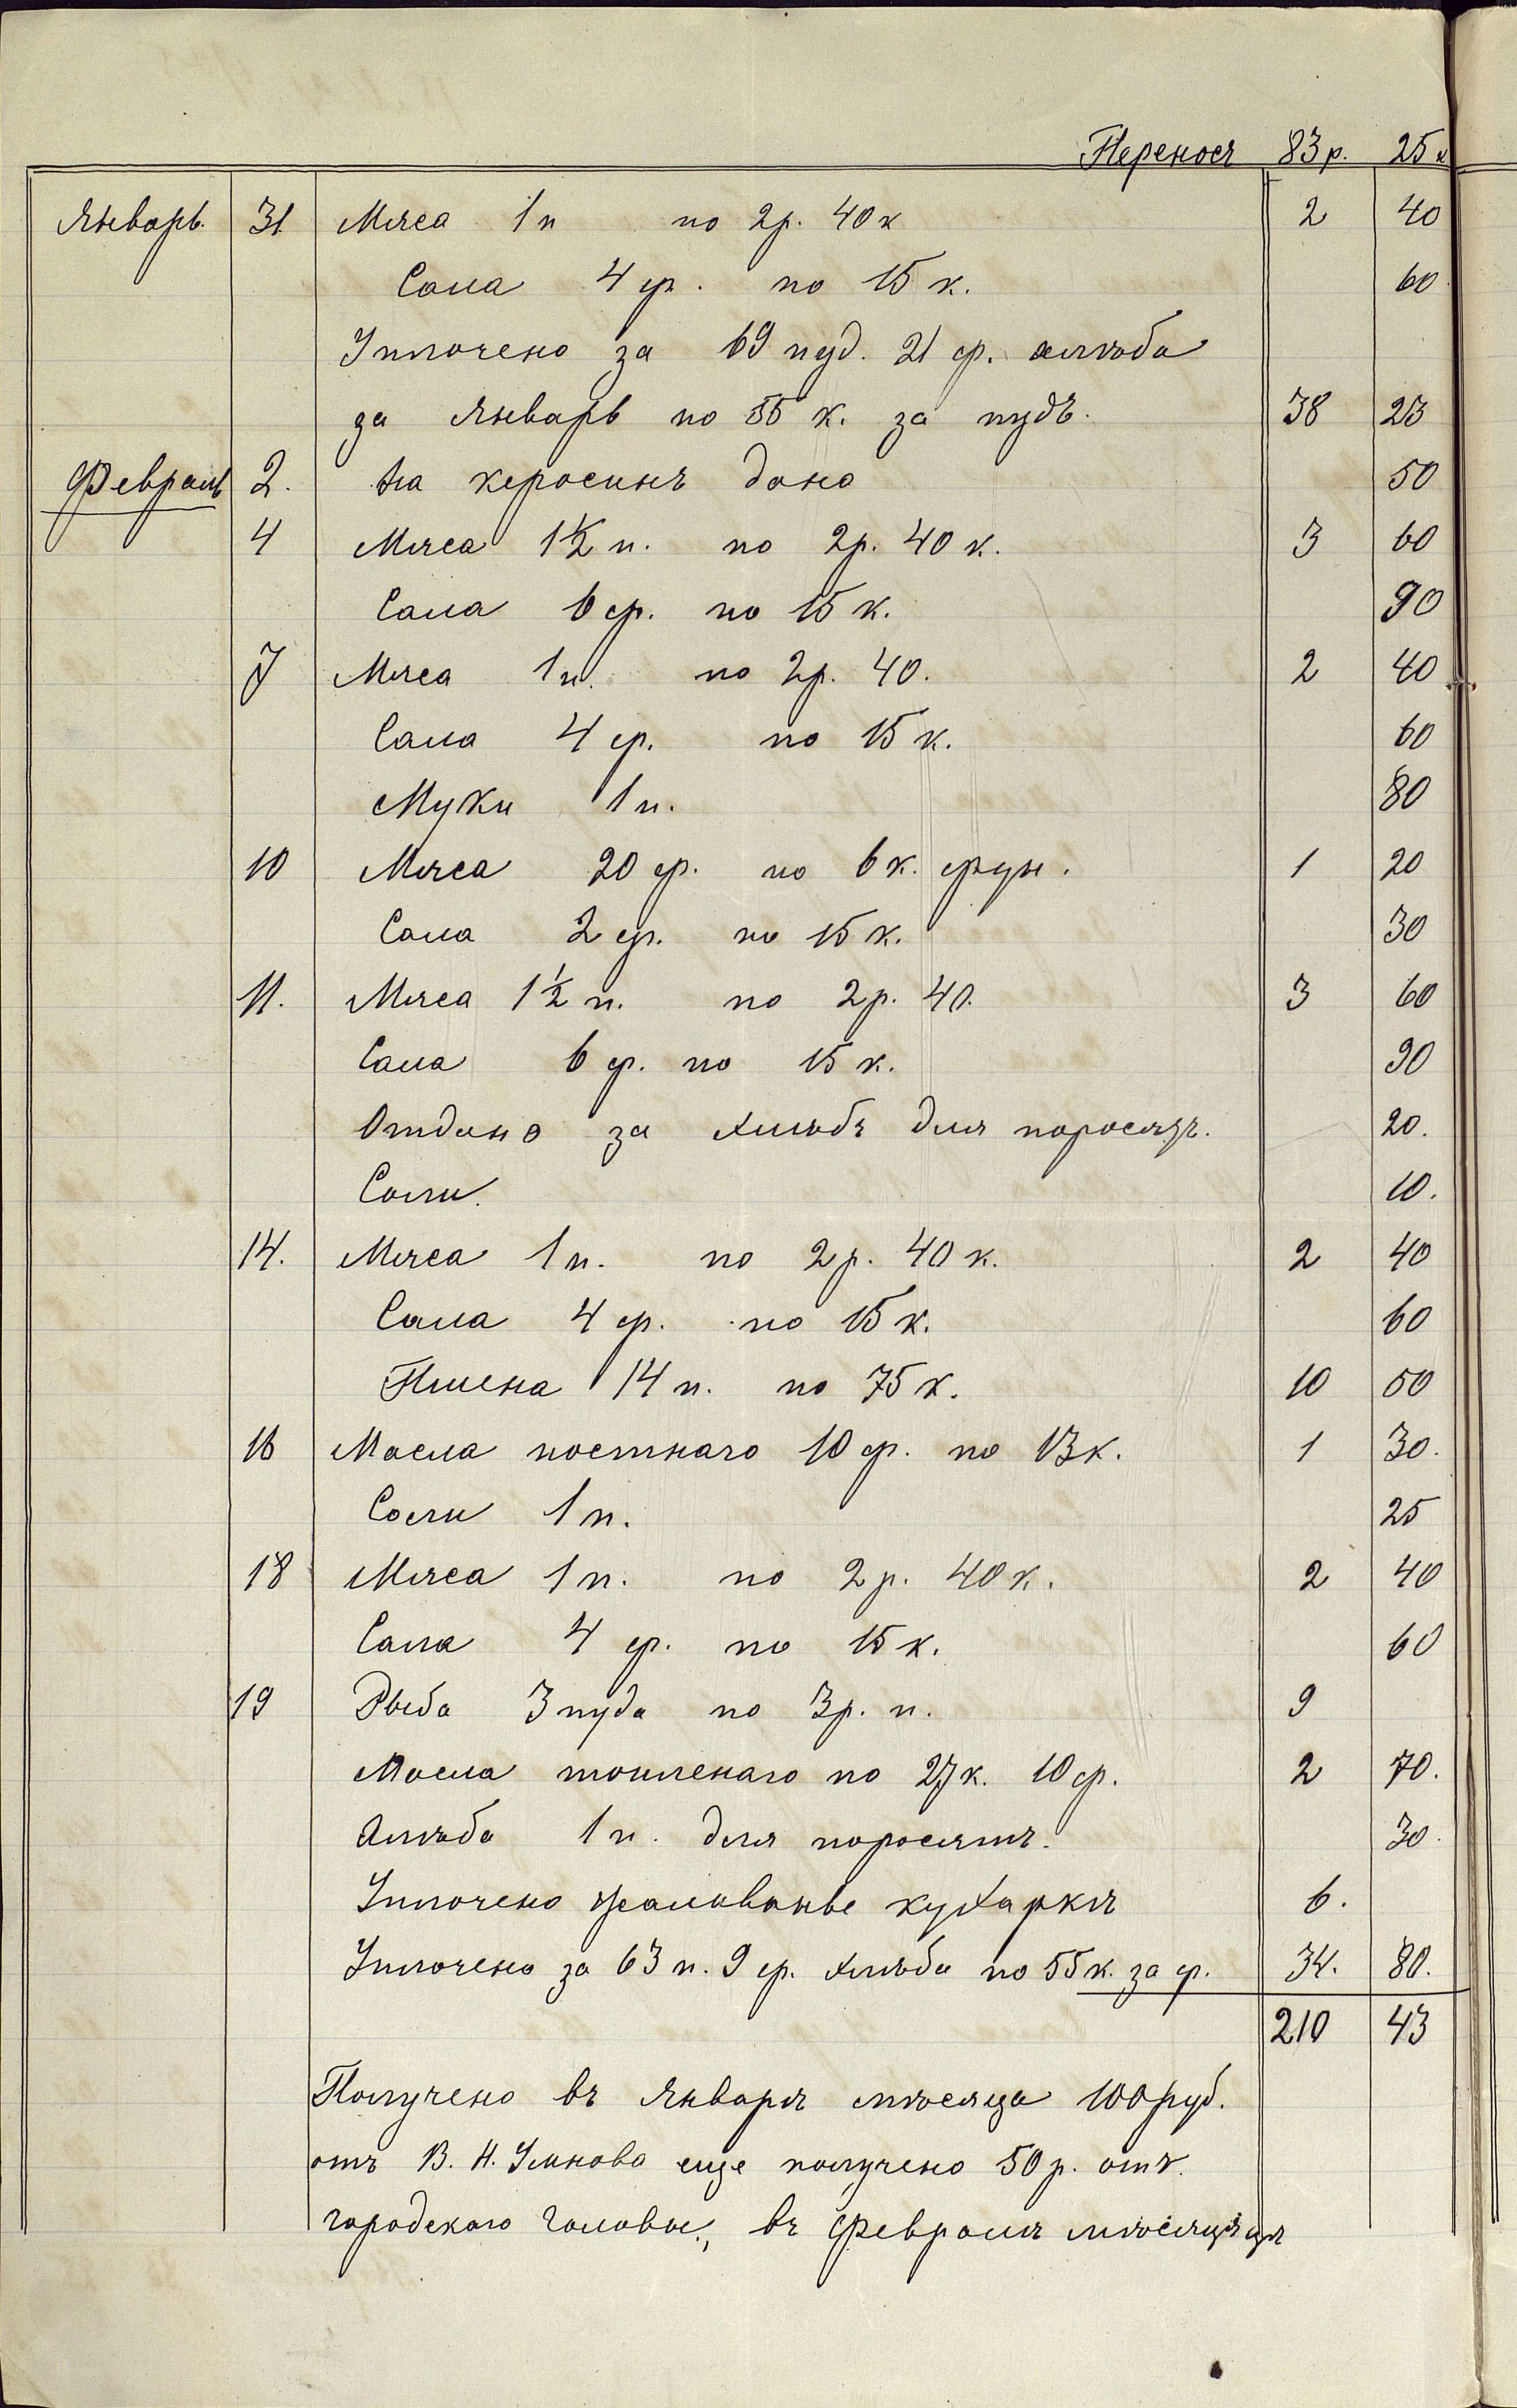 Переносъ 83 р. 25 к
Январь. 31 Мяса 1 п по 2 р. 40 к 2 40
Сала 4 ф. по 15 к. 60
Уплочено за 69 пуд. 21 ф. хлѣба
за Январь по 55 к. за пудъ. 38 23
Февраль 2. На керосинъ дано 50
4 Мяса 1½ п. по 2 р. 40 к. 3 60
Сала 6 ф. по 15 к. 90
7 Мяса 1 п. по 2 р. 40. 2 40
Сала 4 ф. по 15 к. 60
Муки 1 п. 80
10 Мяса 20 ф. по 6 к. фун. 1 20
Сала 2 ф. по 15 к. 30
11. Мяса 1½ п. по 2 р. 40. 3 60
Сала 6 ф. по 15 к. 90
Отдано за хлѣбъ для поросятъ. 20.
Соли. 10.
14. Мяса 1 п. по 2 р. 40 к. 2 40
Сала 4 ф. по 15 к. 60
Пшена 14 п. по 75 к. 10 50
16 Масла постнаго 10 ф. по 13 к. 1 30.
Соли 1 п. 25
18 Мяса 1 п. по 2 р. 40 к. 2 40
Сала 4 ф. по 15 к. 60
19 Рыба 3 пуда по 3 р. п. 9
Масла топленаго по 27 к. 10 ф. 2 70.
Хлѣба 1 п. для поросятъ. 30.
Уплочено жалованье кухаркѣ 6.
Уплочено за 63 п. 9 ф. хлѣба по 55 к. за ф. 34. 80.
210 43
Получено въ Январѣ мѣсяца 100 руб.
отъ В. Н. Умнова еще получено 50 р. отъ
городскаго головы, въ Февралѣ